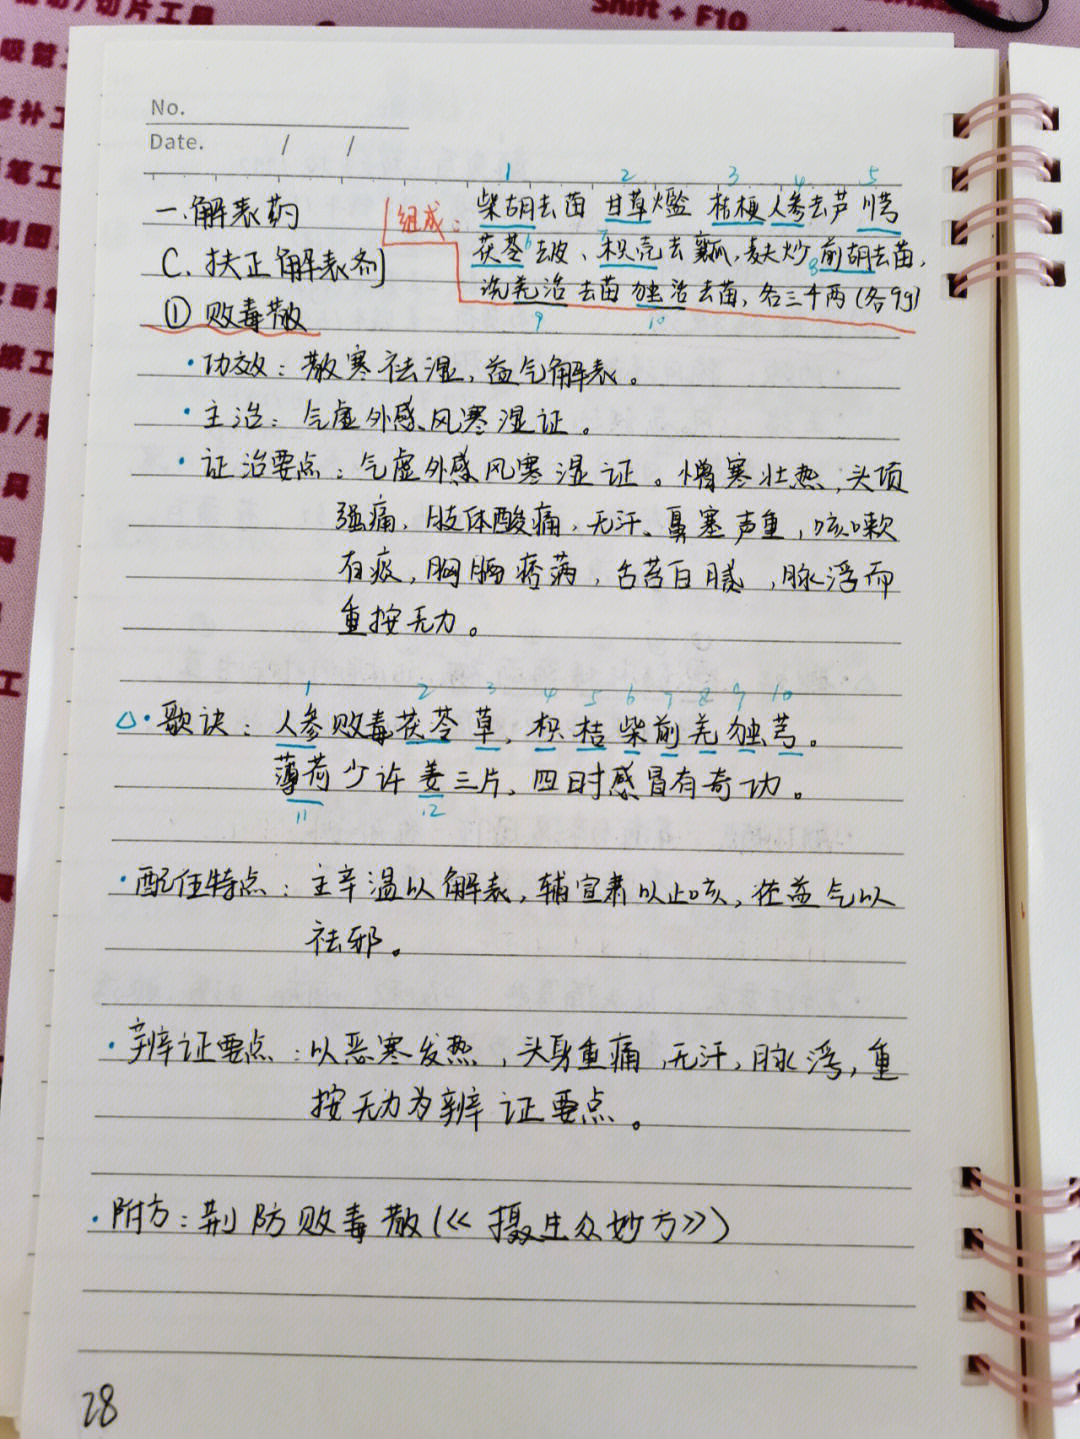 切片工具
Shift + F10
吸管
修补工
笔工
制图
No.
Date. / /
1 2 3 4 5
一.解表药
C. 扶正解表剂
① 败毒散
组成: 柴胡去苗 甘草爁 桔梗 人参去芦 川芎
6 7 8
茯苓去皮、枳壳去瓤,麸炒 前胡去苗,
羌活去苗 独活去苗,各三十两(各9g)
9 10
·功效: 散寒祛湿,益气解表。
·主治: 气虚外感风寒湿证。
·证治要点: 气虚外感风寒湿证。憎寒壮热,头项
强痛,肢体酸痛,无汗、鼻塞声重,咳嗽
有痰,胸膈痞满,舌苔白腻,脉浮而
重按无力。
1 2 3 4 5 6 7 8 9 10
△·歌诀: 人参败毒茯苓草,枳桔柴前羌独芎。
薄荷少许姜三片,四时感冒有奇功。
11 12
·配伍特点: 主辛温以解表,辅宣肃以止咳,佐益气以
祛邪。
·辨证要点:以恶寒发热,头身重痛,无汗,脉浮,重
按无力为辨证要点。
·附方:荆防败毒散(《摄生众妙方》)
28